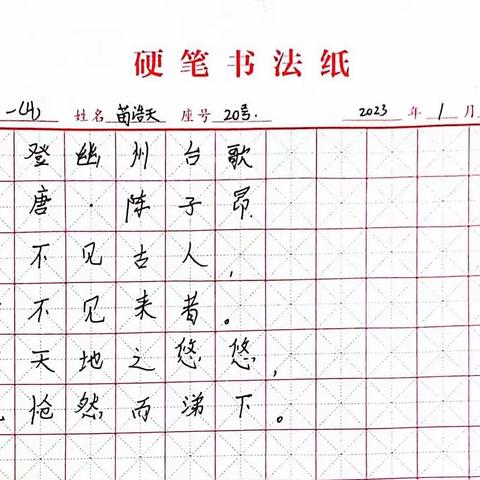 硬笔书法纸
一(4) 姓名 苗浩天 座号 20号. 2023 年 1 月
登幽州台歌
唐·陈子昂
不见古人,
不见来者。
天地之悠悠,
怆然而涕下。